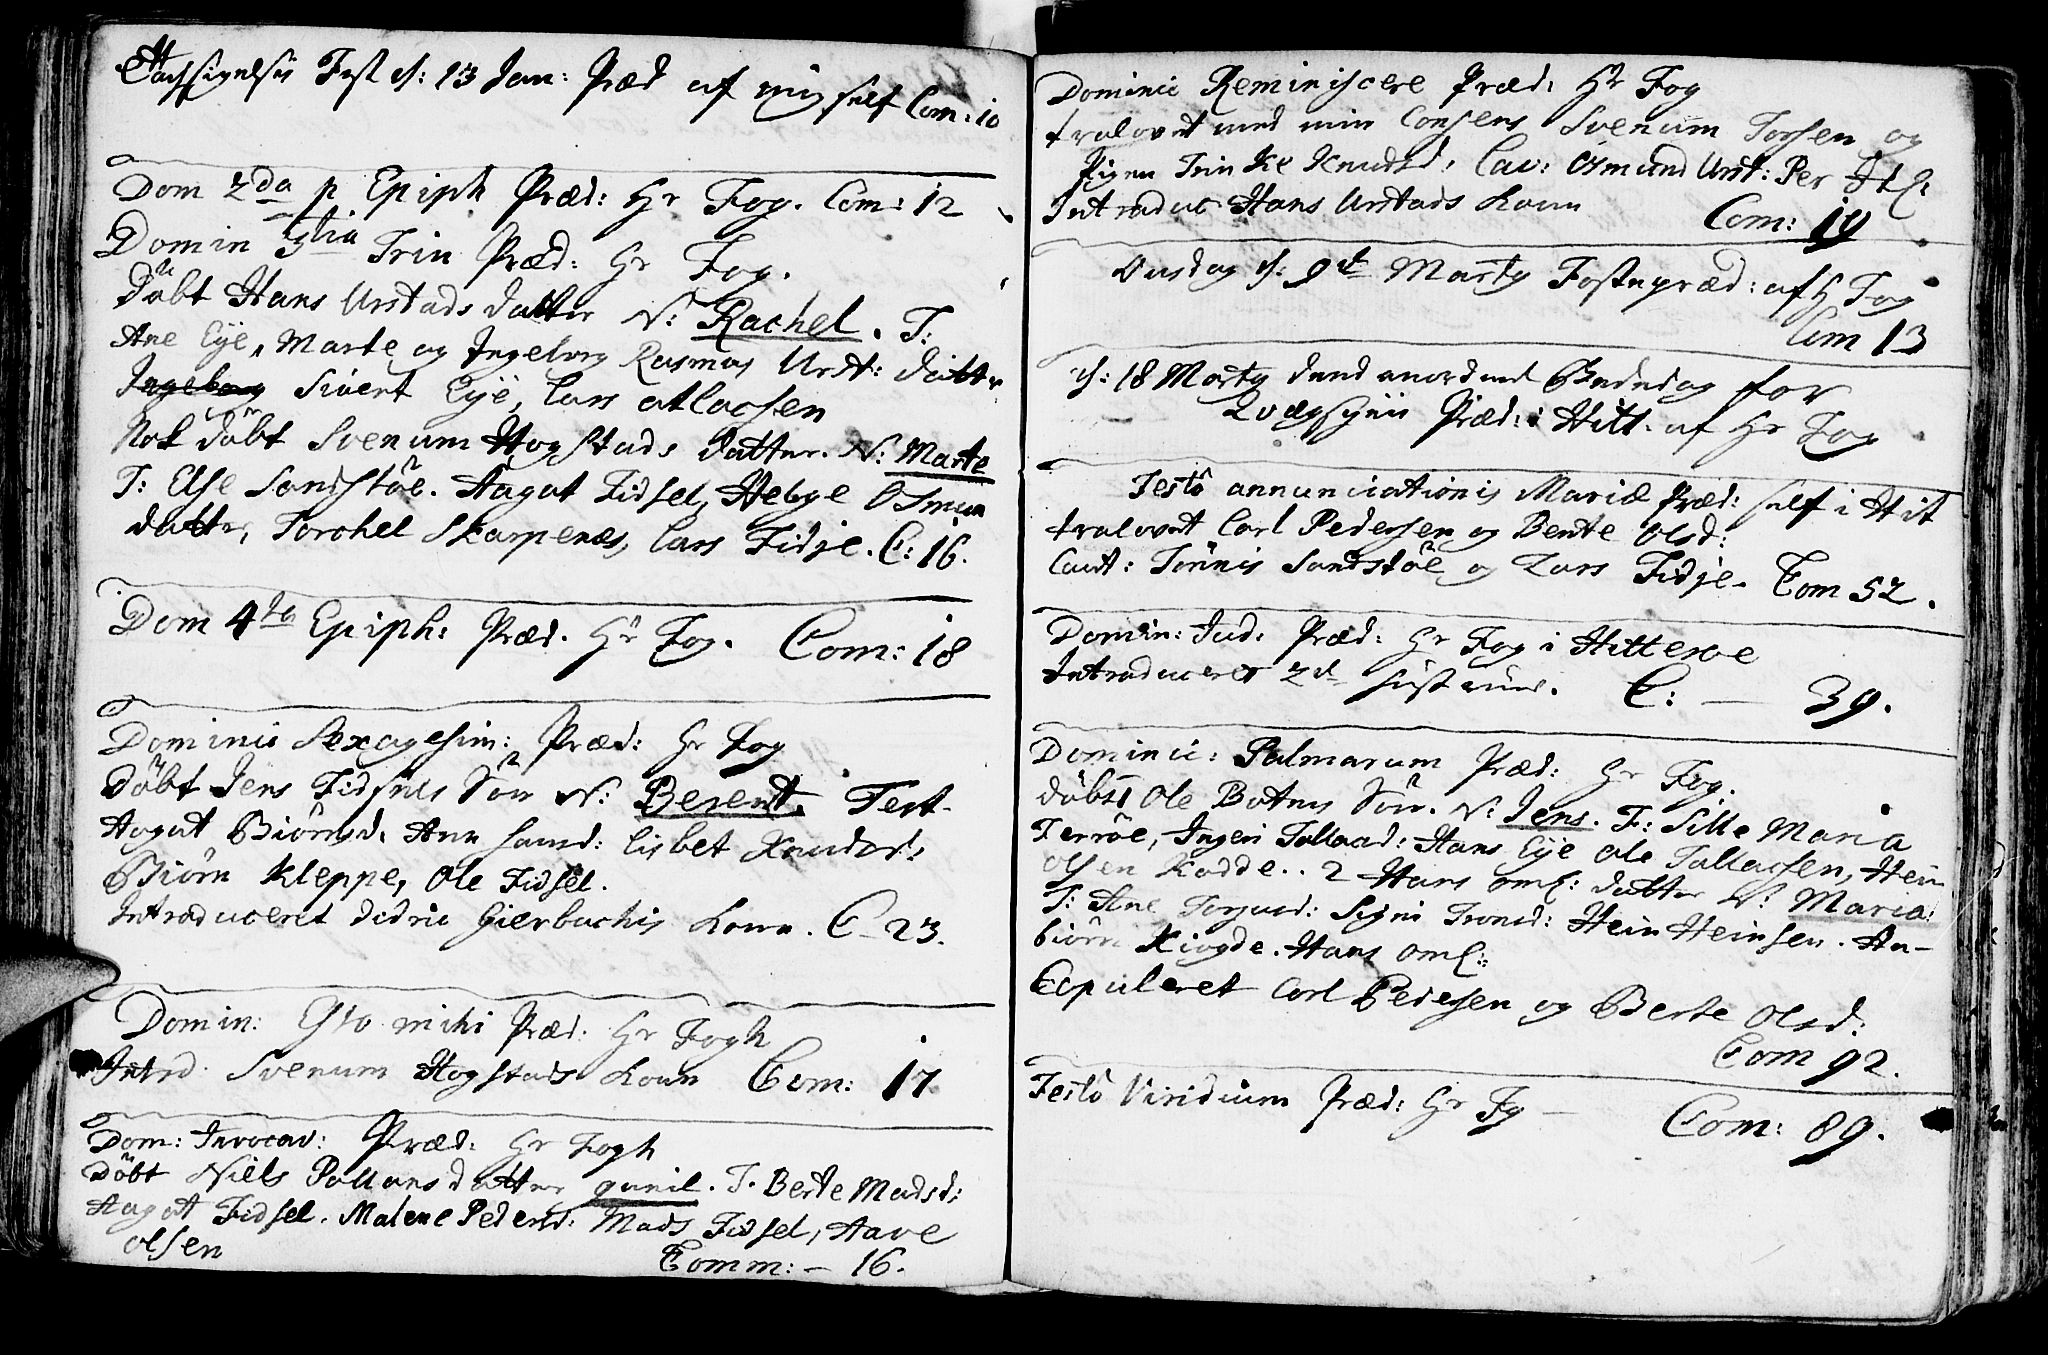 Tachsigelsis Fest d: 13 Jan: Præd af mig self Com: 10
Dom 2da p Epiph Præd: Hr Fog. Com: 12
Domin 3tia Trin Præd: Hr Fog.
döbt Hans Urstads datter N: Rachel. T:
Ane Eÿe, Marte og Ingeborg Rasmus Urst: datter
Ingeborg Sivert Eÿe, Lars Atlachsen
Nok döbt Svenum Hogstads datter. N: Marte
T: Else Sandstöe. Aagat Fidsel, Helge Osmun
datter, Torchel Skarpenes, Lars Fidje. C: 16.
Dom 4ta Epiph: Præd. Hr Fog. Com: 18
Dominic Sexagesim: Præd: Hr Fog
döbt Jens Fidsels Sön N: Berent. Test.
Aagat Biörnsd. Ane Hansd: Lisbet Knudsd:
Biörn Kleppe, Ole Fidsel.
Introduceret Didric Gierbachis Kone. C 23.
Domin: Esto mihi Præd: Hr Fogh
Intrd. Svenum Hogstads Kone Com: 17
Dom: Invocav: Præd: Hr Fogh
Döbt Niels datter gunil. T. Berte Madsd:
Aagat Fidsel. Malene Pedersd: Mads Fidsel, Aave
olsen Comm: – 16.
Dominic Reminiscere Præd: Hr Fog
trolovet med min Consens Svenum Torsen og
Pigen Trinke Knudsd: Cau: Osmund Urst: Per
Introduc Hans Urstads Kone Com: 19
Onsdag d: 9de Marty Fastepræd: af H Fog
Com 13
d: 18 Marty dend anordned Bededag for
Qvægsÿgen Præd: i Hitt. af Hr Fog
Festo annunciationis Mariæ Præd: self i Hit
trolovet Carl Pedersen og Bente Olsd:
Caut: Tönnis Sandstöe og Lars Fidje. Com 52.
Domin: Jud: Præd: Hr Fog i Hitteroe
Introduceret 2de C: — 39.
Dominic: Palmarum Præd: Hr Fog.
döbt Ole Botnes Sön. N: Jens. T: Sille Maria
Terröe, Ingeri Tollacsd: Hans Eÿe Ole Tollacsen, Hein
olsen Rodde.. 2 Hans Oms: datter N: Maria:
T: Ane Torgusd: Signi Tronsd: Hein Heinsen. An-
biörn Kiogde. Hans Oms:
Copuleret Carl Pedersen og Berte Olsd:
Com 92.
Festo Viridium Præd: Hr Fg – Com: 89.